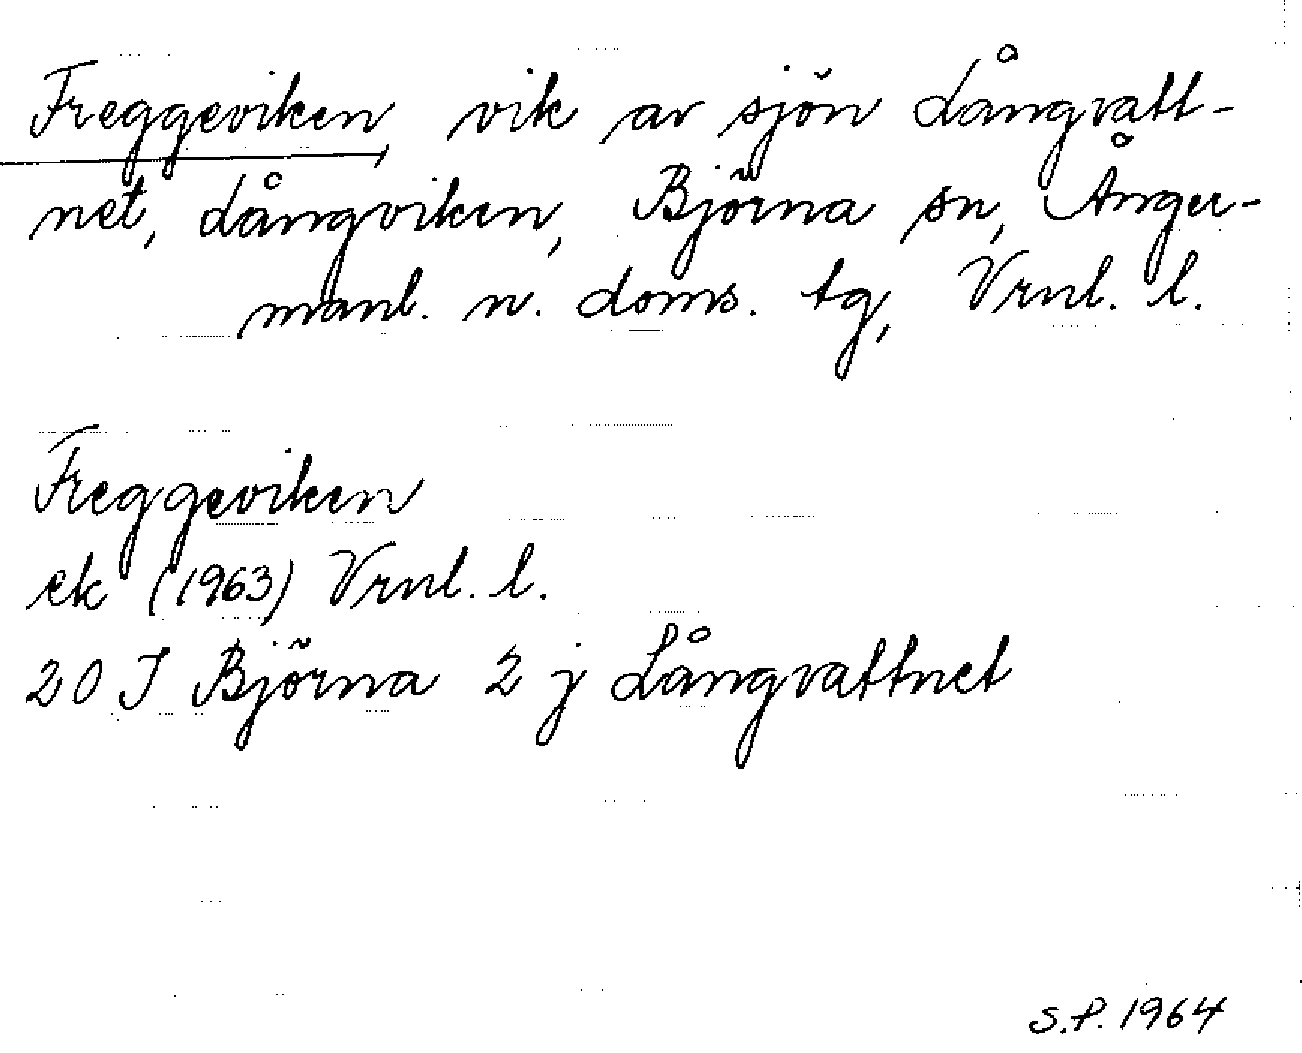 Freggeviken, vik av sjön Långvatt-
net, Långviken, Björna sn, Ånger-
manl. n. doms. tg, Vrnl. l.
Freggeviken
ek (1963) Vrnl. l.
20 J Björna 2 j Långvattnet
S.P. 1964